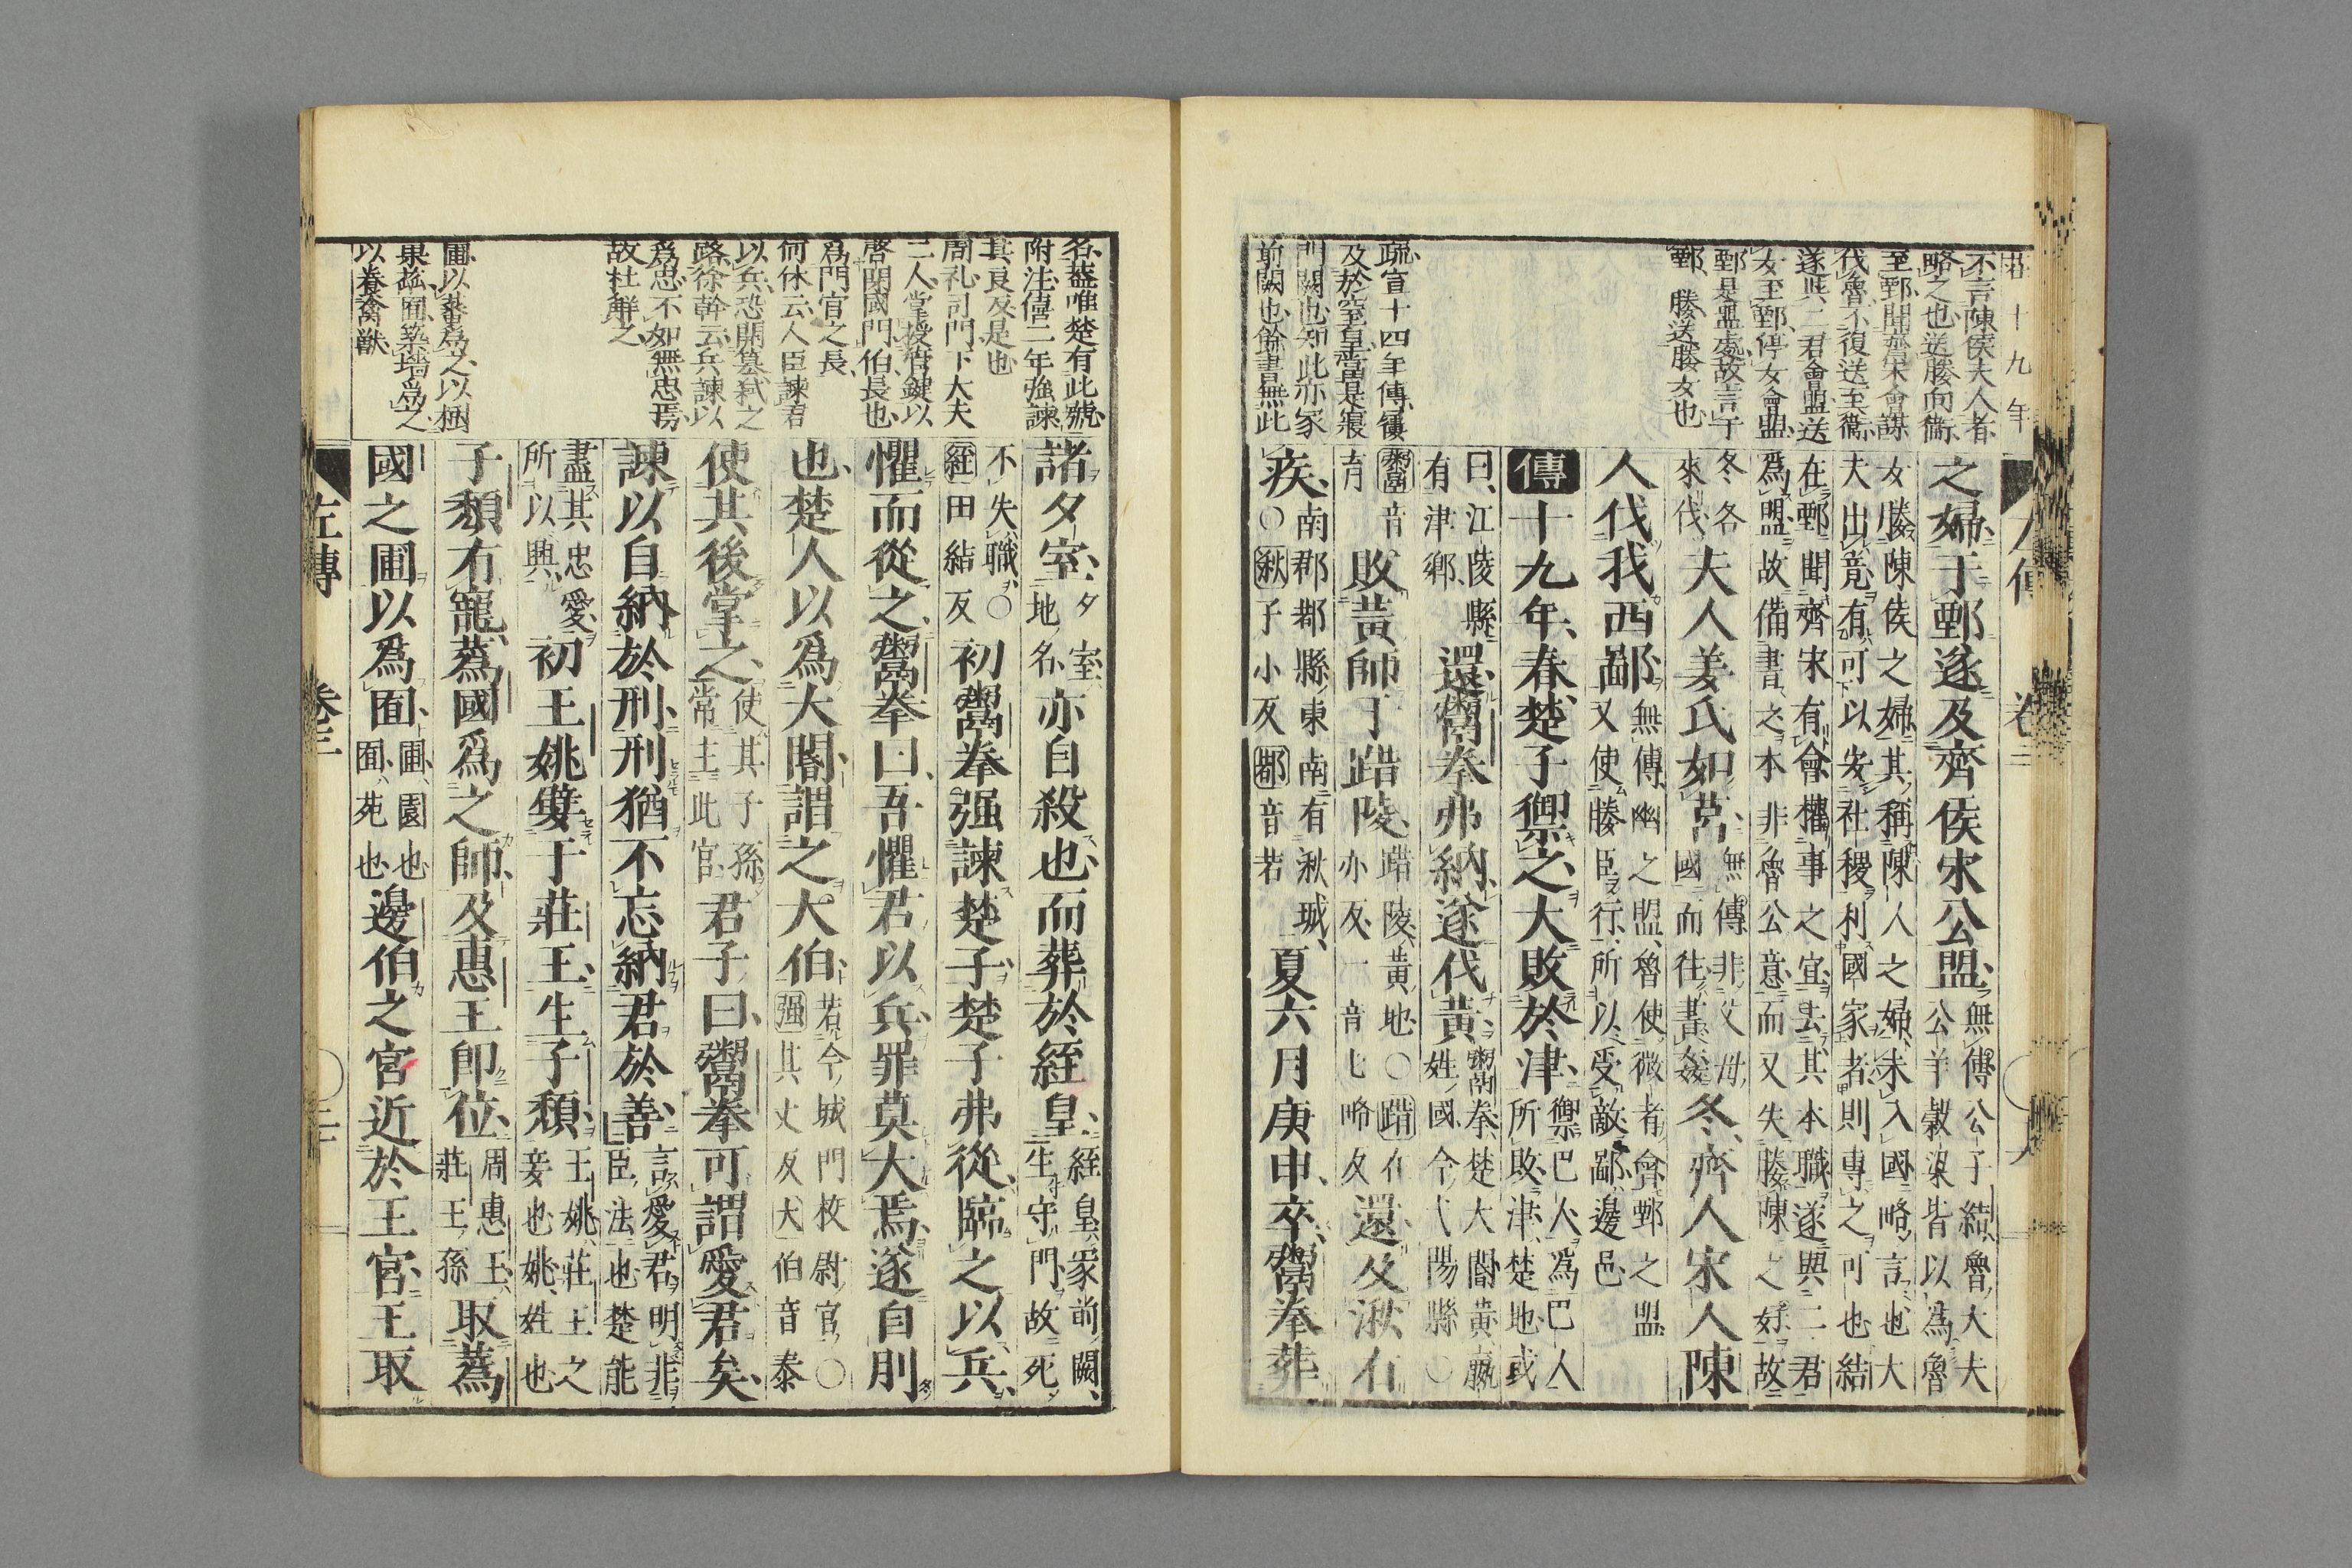 莊十九年
不言陳侯夫人者
略之也送媵向衞
至鄄聞齊宋會謀
伐魯不復送至衞
遂與二君會盟送
女至鄄停女會盟
鄄是盟處故言于
鄄媵送媵女也
疏宣十四年傳
及於窒皇當是寢
門闕也知此亦冢
前闕也餘書無此
左傳 卷三
之婦于鄄遂及齊侯宋公盟
無傳公子結魯大夫
公羊穀梁皆以爲魯
女媵陳侯之婦其稱陳人之婦未入國略言也大
夫出竟有可以安社稷利國家者則專之可也結
在鄄聞齊宋有會權事之宜去其本職遂與二君
爲盟故備書之本非魯公意而又失媵陳之好故
冬各
來伐
夫人姜氏如莒
無傳非父母
國而往書姦
冬齊人宋人陳
人伐我西鄙
無傳幽之盟魯使微者會鄄之盟
又使媵臣行所以受敵鄙邊邑
傳十九年春楚子禦之大敗於津
禦巴人爲巴人
所敗津楚地或
曰江陵縣
有津鄉
還鬻拳弗納遂伐黃
鬻拳楚大閽黃嬴
姓國今弋陽縣○
鬻音
育
敗黃師于踖陵
踖陵黃地○踖在
亦反一音七略反
還及湫有
疾
南郡鄀縣東南有湫城
○湫子小反鄀音若
夏六月庚申卒鬻拳葬
名蓋唯楚有此號
附注僖二年強諫
其良反是也
周礼司門下大夫
二人掌授管鍵以
啓閉國門伯長也
爲門官之長
何休云人臣諫君
以兵恐開簒弑之
路徐幹云兵諫以
爲忠不如無忠焉
故杜解之
圃以蕃爲之以樹
果蓏囿築墻爲之
以養禽獸
諸夕室
夕室
地名
亦自殺也而葬於絰皇
絰皇冢前闕
生守門故死
不失職○
絰田結反
初鬻拳强諫楚子楚子弗從臨之以兵
懼而從之鬻拳曰吾懼君以兵罪莫大焉遂自刖
也楚人以爲大閽謂之大伯
若今城門校尉官○
强其丈反大伯音泰
使其後掌之
使其子孫
常主此官
君子曰鬻拳可謂愛君矣
諫以自納於刑刑猶不忘納君於善
言愛君明非
臣法也楚能
盡其忠愛
所以興
初王姚嬖于莊王生子頽
王姚莊王之
妾也姚姓也
子頽有寵蔿國爲之師及惠王卽位
周惠王
莊王孫
取蔿
國之圃以爲囿
圃園也
囿苑也
邊伯之宮近於王宮王取
左傳 卷三 二十